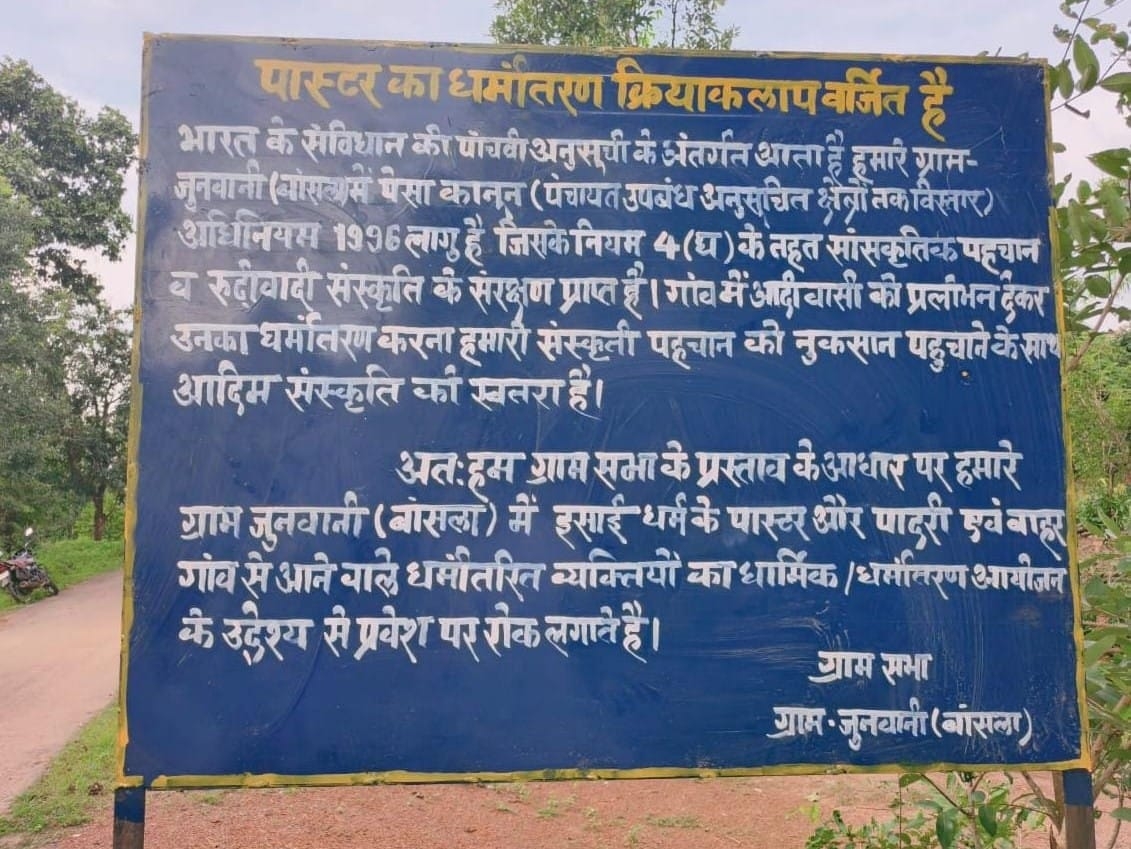 पास्टर का धर्मांतरण क्रियाकलाप वर्जित है
भारत के संविधान की पांचवी अनुसूची के अंतर्गत आता है हमारे ग्राम-
जुनवानी (बांसला) में पेसा कानून (पंचायत उपबंध अनुसूचित क्षेत्रों तक विस्तार)
अधिनियम 1996 लागु है जिसके नियम 4(घ) के तहत सांस्कृतिक पहचान
व रुदीवादी संस्कृति के संरक्षण प्राप्त है। गांव में आदीवासी को प्रलोभन देकर
उनका धर्मांतरण करना हमारी संस्कृती पहचान को नुकसान पहुचाने के साथ
आदिम संस्कृति को खतरा है।
अतः हम ग्राम सभा के प्रस्ताव के आधार पर हमारे
ग्राम जुनवानी (बांसला) में इसाई धर्म के पास्टर और पादरी एवं बाहर
गांव से आने वाले धर्मांतरित व्यक्तियों का धार्मिक /धर्मांतरण आयोजन
के उद्देश्य से प्रवेश पर रोक लगाते है।
ग्राम सभा
ग्राम - जुनवानी (बांसला)